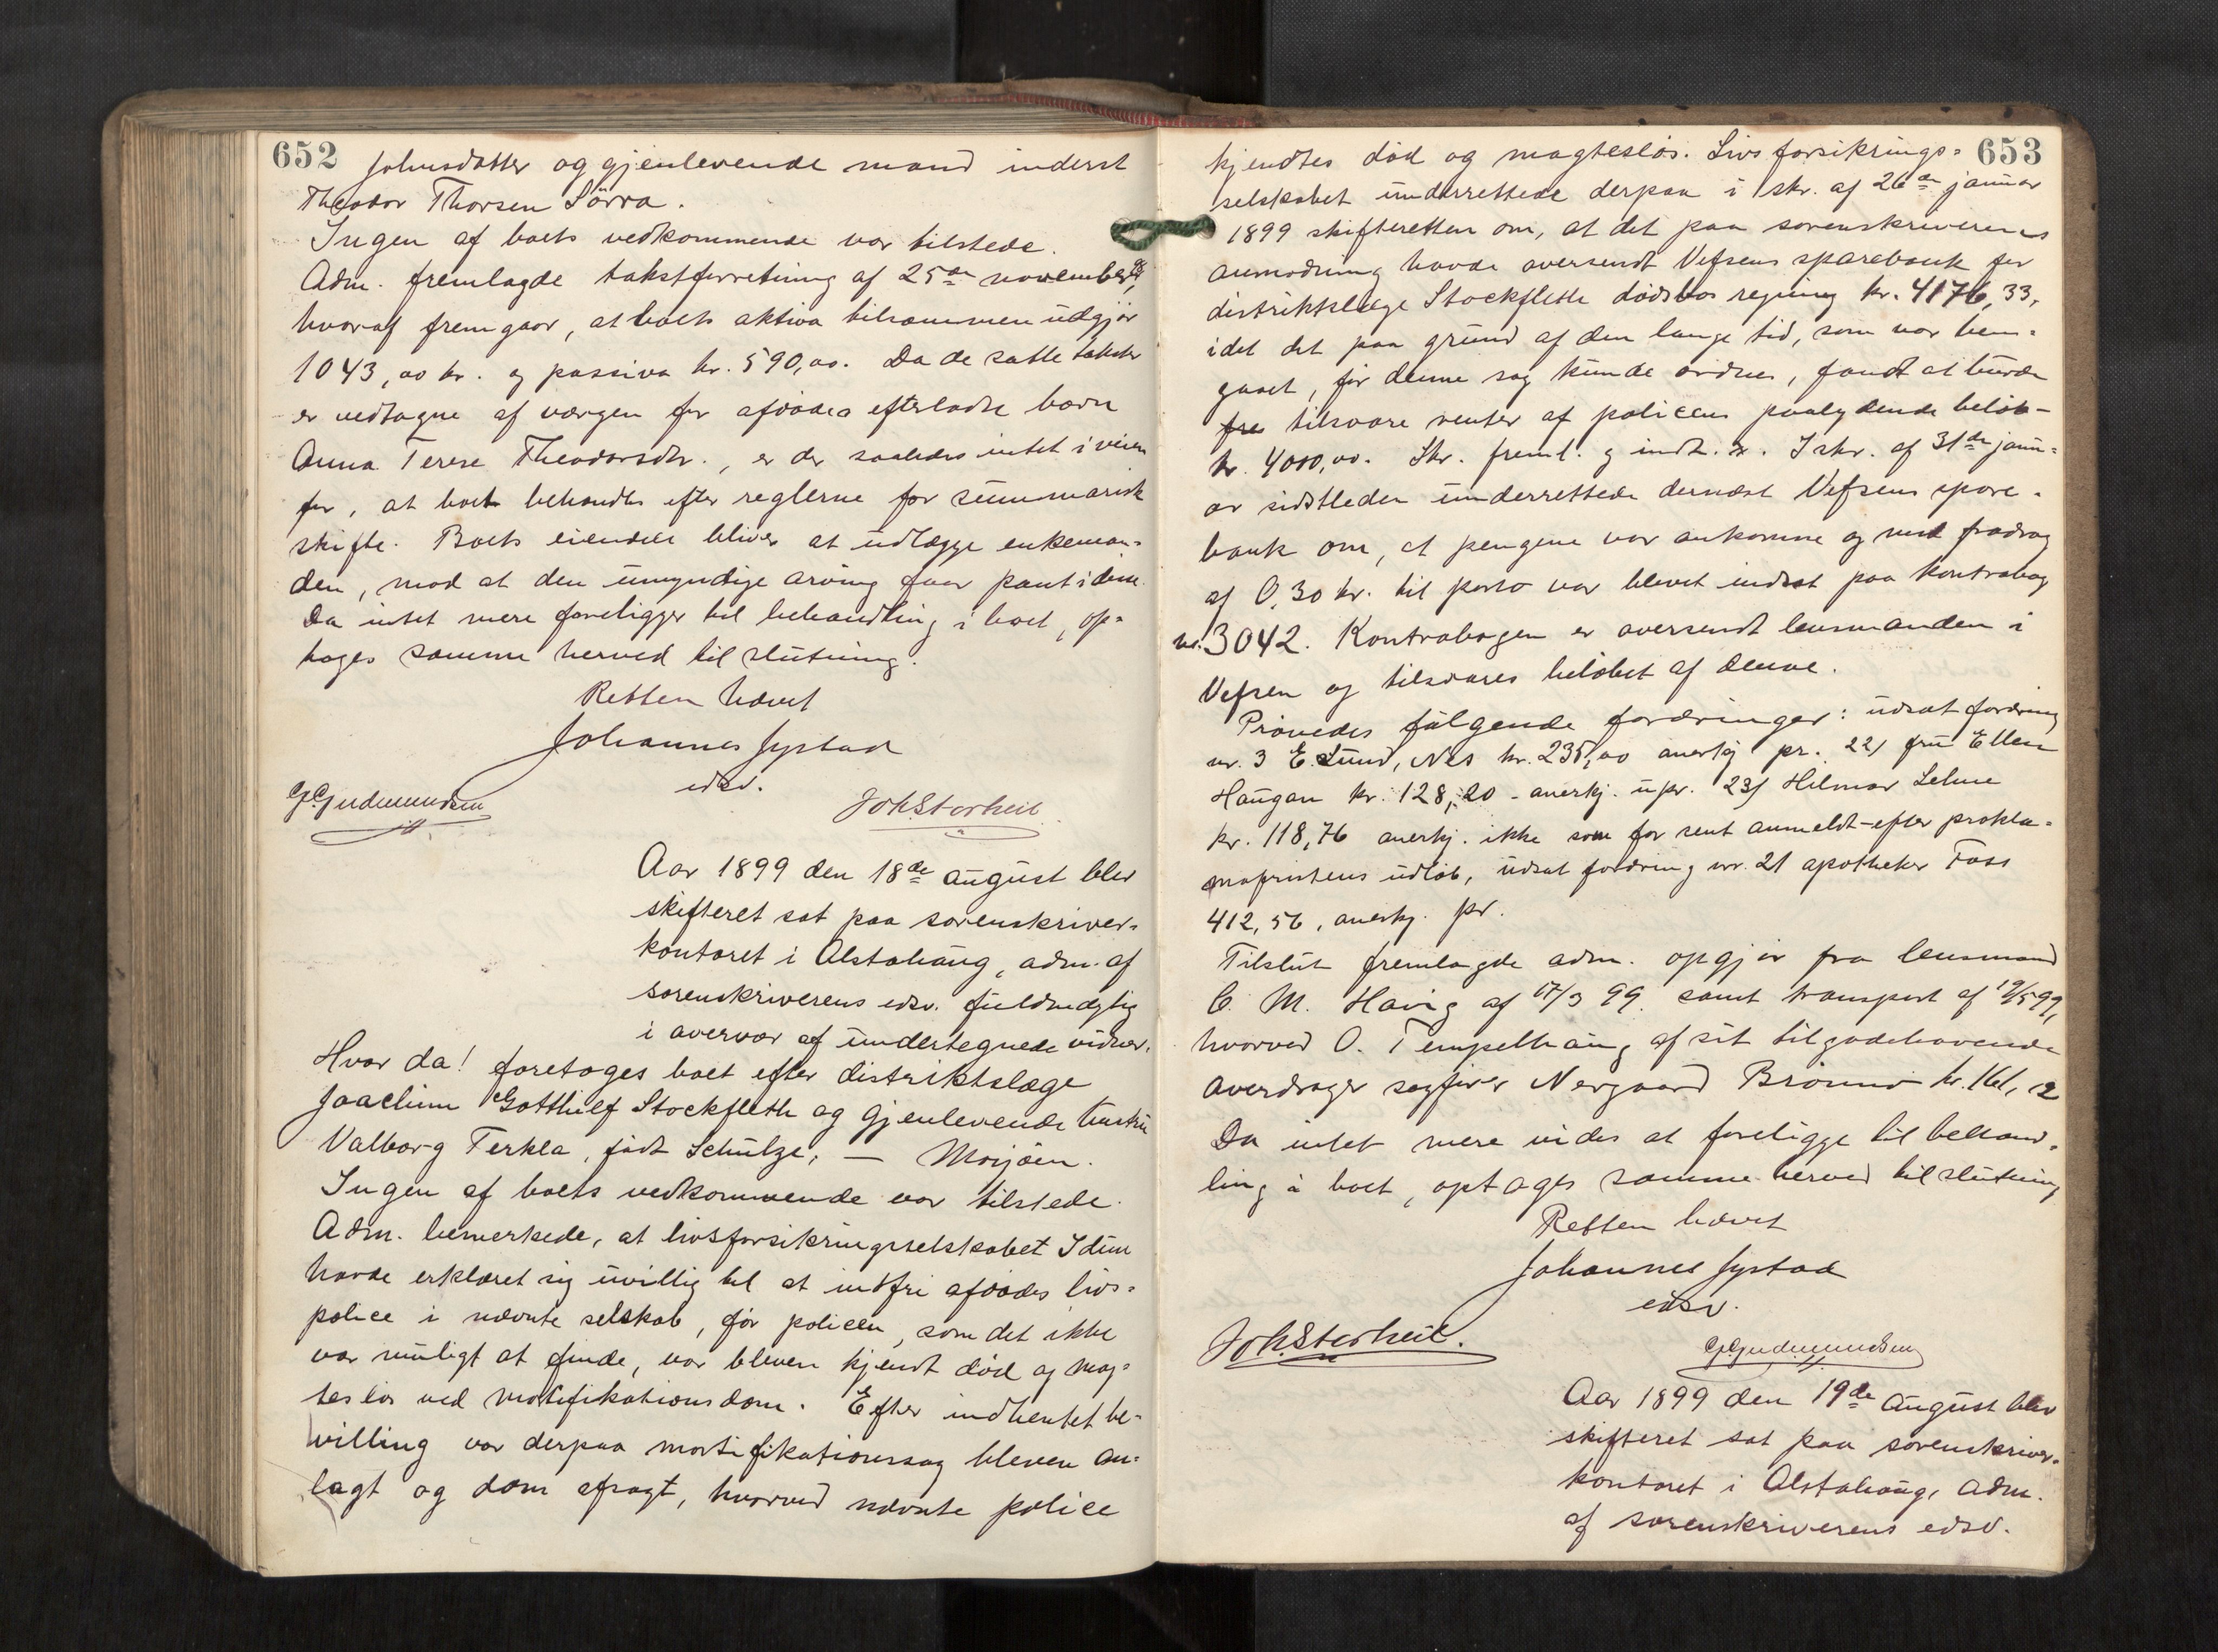 652
Johnsdatter og gjenlevende mand inderst
Theodor Thorsen Sörra.
Ingen af boets vedkommende var tilstede.
Adm. fremlagde takstforretning af 25de november 98,
hvoraf fremgaar, at boets aktiva tilsammen udgjör
1043,00 kr. og passiva kr. 590,00. Da de satte takster
er vedtagne af værgen for afdödes efterladte barn
Anna Terese Theodorsdtr., er der saaledes intet i veien
for, at boet behandles efter reglerne for summarisk
skifte. Boets eiendele bliver at udlægge enkeman-
den, mod at den umyndige arving faar pant i disse.
Da intet mere foreligger til behandling i boet, op-
tages samme herved til slutning.
Retten hævet
Johannes Systad
edsv.
G. Gudmundsen
Joh. Storheil
Aar 1899 den 18de august blev
skifteret sat paa sorenskriver-
kontoret i Alstahaug, adm. af
sorenskriverens edsv. fuldmægtig
i overvær af undertegnede vidner.
Hvor da! foretoges boet efter distriktslæge
Joachim Gotthilf Stockfleth og gjenlevende hustru
Valborg Terkla, födt Schulze, — Mosjöen.
Ingen af boets vedkommende var tilstede.
Adm. bemerkede, at livsforsikringsselskabet Idun
havde erklæret sig uvillig til at indfri afdödes livs-
police i nævnte selskab, för policen, som det ikke
var muligt at finde, var bleven kjendt död og mag-
teslös ved mortifikationsdom. Efter indhentet be-
villing var derpaa mortifikationssag bleven an-
lagt og dom afsagt, hvorved nævnte police
653
kjendtes död og magteslös. Livsforsikrings-
selskabet underrettede derpaa i skr. af 26de januar
1899 skifteretten om, at det paa sorenskriverens
anmodning havde oversendt Vefsens sparebank for
distriktslæge Stockfleths dödsbos regning kr. 4176,33,
idet det paa grund af den lange tid, som var hen-
gaaet, för denne sag kunde ordnes, fandt at burde
tilsvare renter af policens paalydende belöb -
kr. 4000,00. Skr. freml. og indt. I skr. af 31de janu-
ar sidstleden underrettede dernæst Vefsens spare-
bank om, at pengene var ankomne og med fradrag
af 0,30 kr. til porto var blevet indsat paa kontrabog
nr. 3042. Kontrabogen er oversendt lensmanden i
Vefsen og tilsvares belöbet af denne.
Prövedes fölgende fordringer: udsat fordring
nr. 3 E. Lund, Nes kr. 235,00 anerkj pr. 22) fru Ellen
Haugan kr. 128,20 - anerkj. upr. 23) Hilmar Lehne
kr. 118,76 anerkj. ikke som for sent anmeldt - efter prokla-
mafristens udlöb, udsat fordring nr. 21 apotheker Foss
412,56, anerkj. pr.
Tilslut fremlagde adm. opgjör fra lensmand
C. M. Havig af 17/3 99. samt transport af 19/5 99,
hvorved O. Tempelhaug af sit tilgodehavende
overdrager sagförer Nergaard Brönnö kr. 161,12
Da intet mere vides at foreligge til behand-
ling i boet, optages samme herved til slutning
Retten hævet
Johannes Systad
edsv.
Joh. Storheil.
G. Gudmundsen
Aar 1899 den 19de august blev
skifteret sat paa sorenskriver-
kontoret i Alstahaug, adm.
af sorenskriverens edsv.